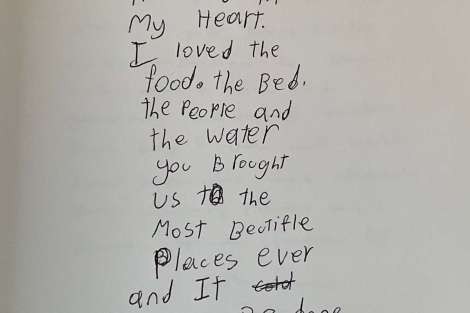 My Heart.
I loved the
food. the Bed.
the People and
the water
you Brought
us to the
Most Bectifle
Places ever
and It cold